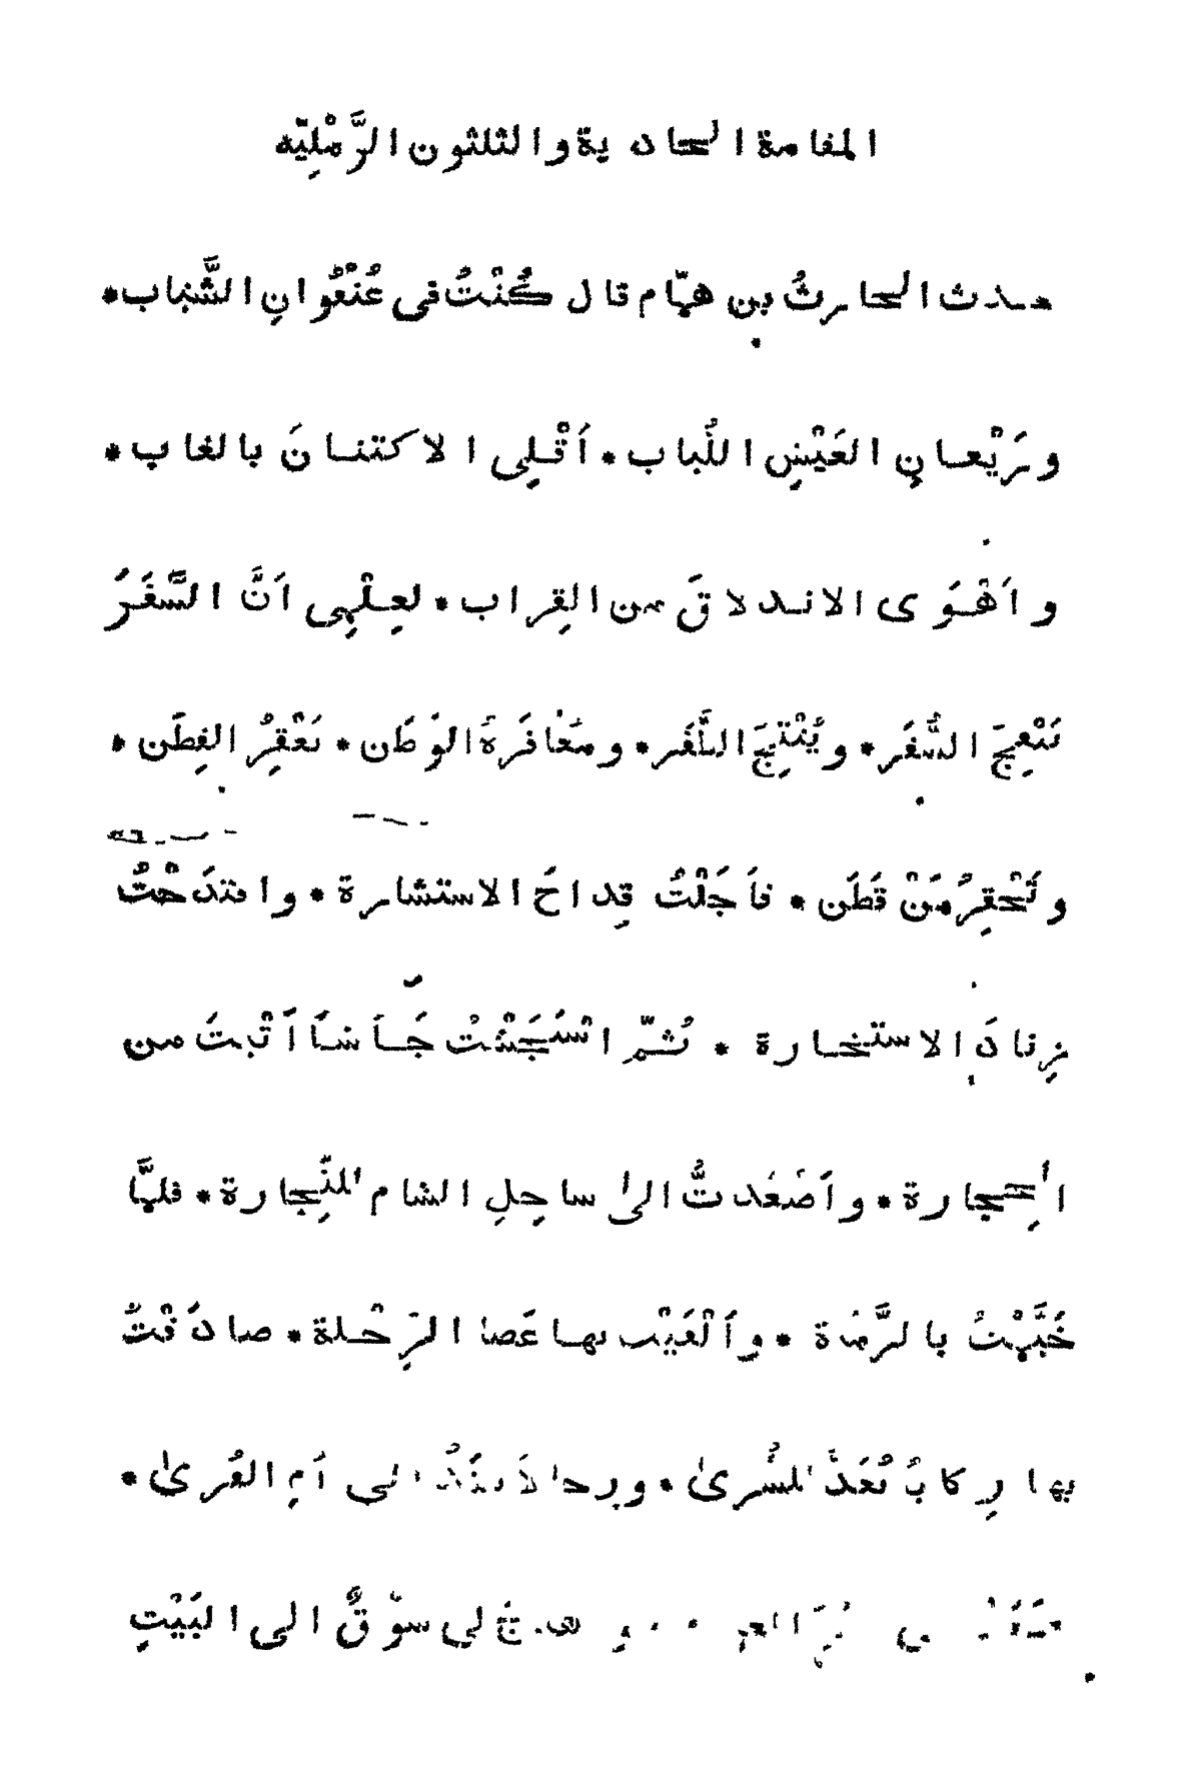 المقامة الحادية والثلثون الرَّمْلِيّه
حدث الحارثُ بن همّام قال كُنْتُ فى عُنْفُوانِ الشَّباب*
ورَيْعانِ العَيْشِ اللُباب* اَقْلِى الاكتنانَ بالغاب*
واَهْوَى الاندلاقَ من القِراب* لعِلْمِى اَنَّ السَّفَرَ
تَنْفِجَ السُّفَر* ويُنْتِجَ الظَّفَر* ومُعَاقَرةَ الوَطَن* تَعْقِرُ الفِطَن*
وتَحْقِرُ مَنْ قَطَن* فاَجَلْتُ قِداحَ الاستشارة* واقتدَحْتُ
زِنادَ الاستخارة* ثُمّ اسْتَجَشْتُ جَأشاً اَثْبتَ من
الحِجارة* واَصْعَدتُّ الى ساحِلِ الشام للتِّجارة* فلمَّا
خَيَّمْتُ بالرَّمْلة* واَلْقَيْت بها عَصا الرِّحْلة* صادَفْتُ
بها رِكابُ تُعَدُّ للسُّرى* ورِحالاً تُشَدُّ الى اُمِ القُرى*
لى شَوْقٌ الى البَيْتِ